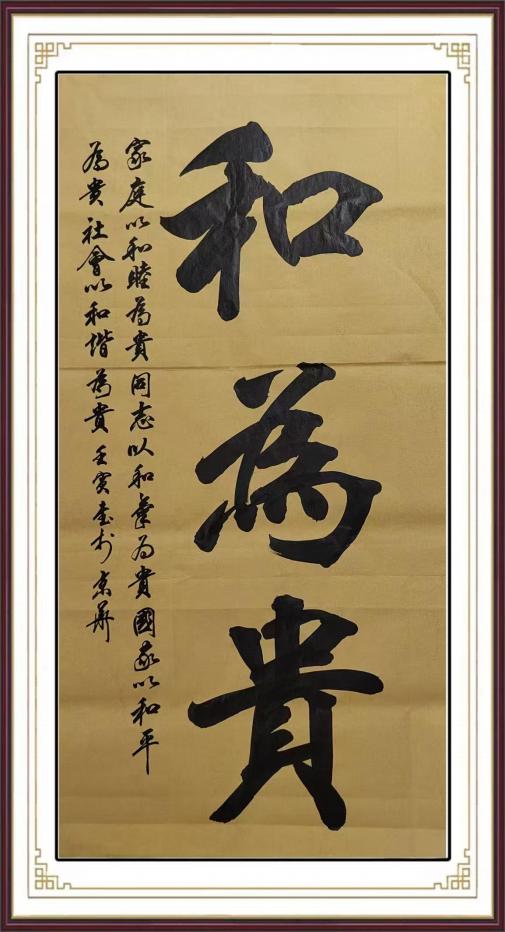 和為貴
家庭以和睦為貴同志以和氣為貴國家以和平
為貴社會以和諧為貴壬寅春於京華